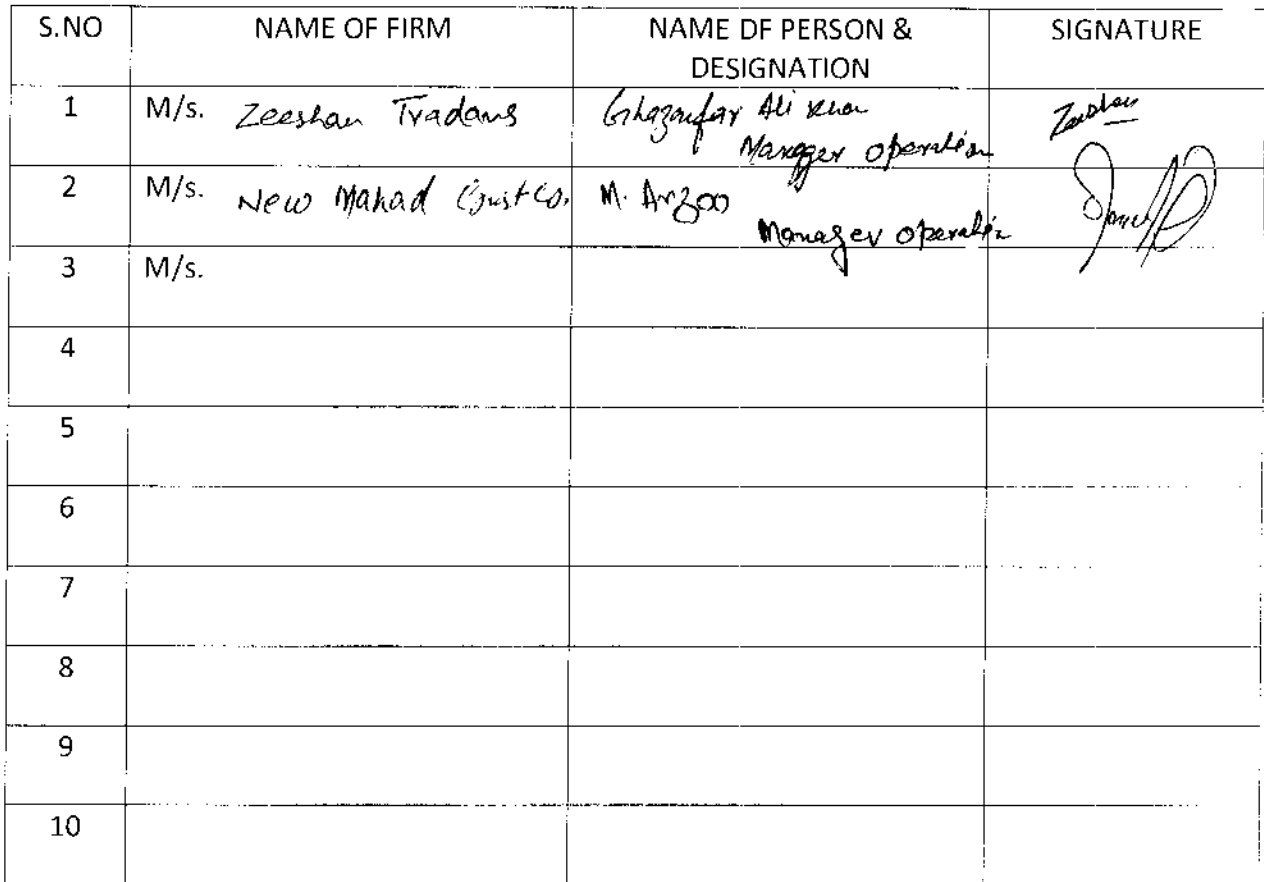 S.NO NAME OF FIRM NAME DF PERSON & SIGNATURE
DESIGNATION
1 M/s. Zeeshan Tradans Ghazanfar Ali Khan Zeeshan
Manager operation
2 M/s. New Mahad Const Co. M. Arzoo
Manager operation
3 M/s.
4
5
6
7
8
9
10